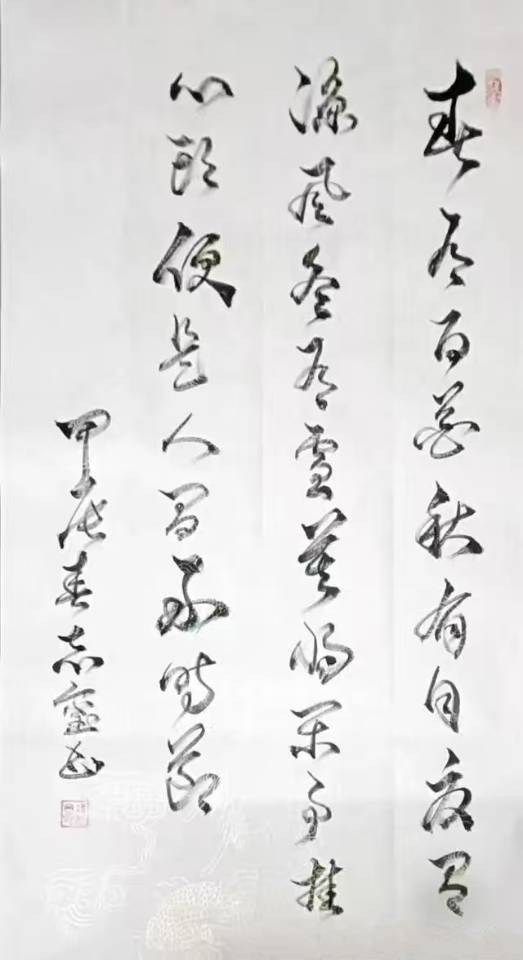 春有百花秋有月夏有
涼風冬有雪莫將閑事挂
心頭便是人間好時節
甲辰春志書